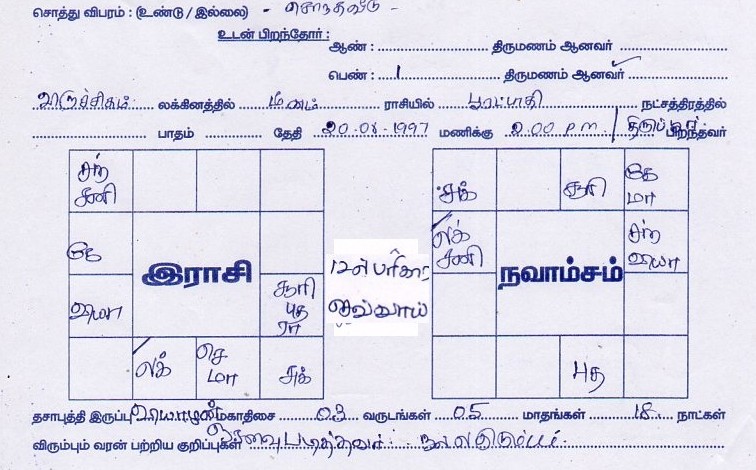 சொத்து விபரம் : (உண்டு / இல்லை) - சொந்தவீடு -
உடன் பிறந்தோர் : ஆண் : திருமணம் ஆனவர்
பெண் : 1 திருமணம் ஆனவர்
விருச்சிகம் லக்கினத்தில் மீனம் ராசியில் பூரட்டாதி நட்சத்திரத்தில்
பாதம் தேதி 20.08.1997 மணிக்கு 2.00 P.m பிறந்தவர்
சந் சனி
கே
செ மா
லக்
சுக்
சூரி புத ரா
இராசி
சுக் சூரி கே மா
லக் சனி
சந்
புத
நவாம்சம்
தசாபுத்தி இருப்பு மகாதிசை 03 வருடங்கள் 05 மாதங்கள் 18 நாட்கள்
விரும்பும் வரன் பற்றிய குறிப்புகள் படித்தவர் நல்ல குடும்பம்